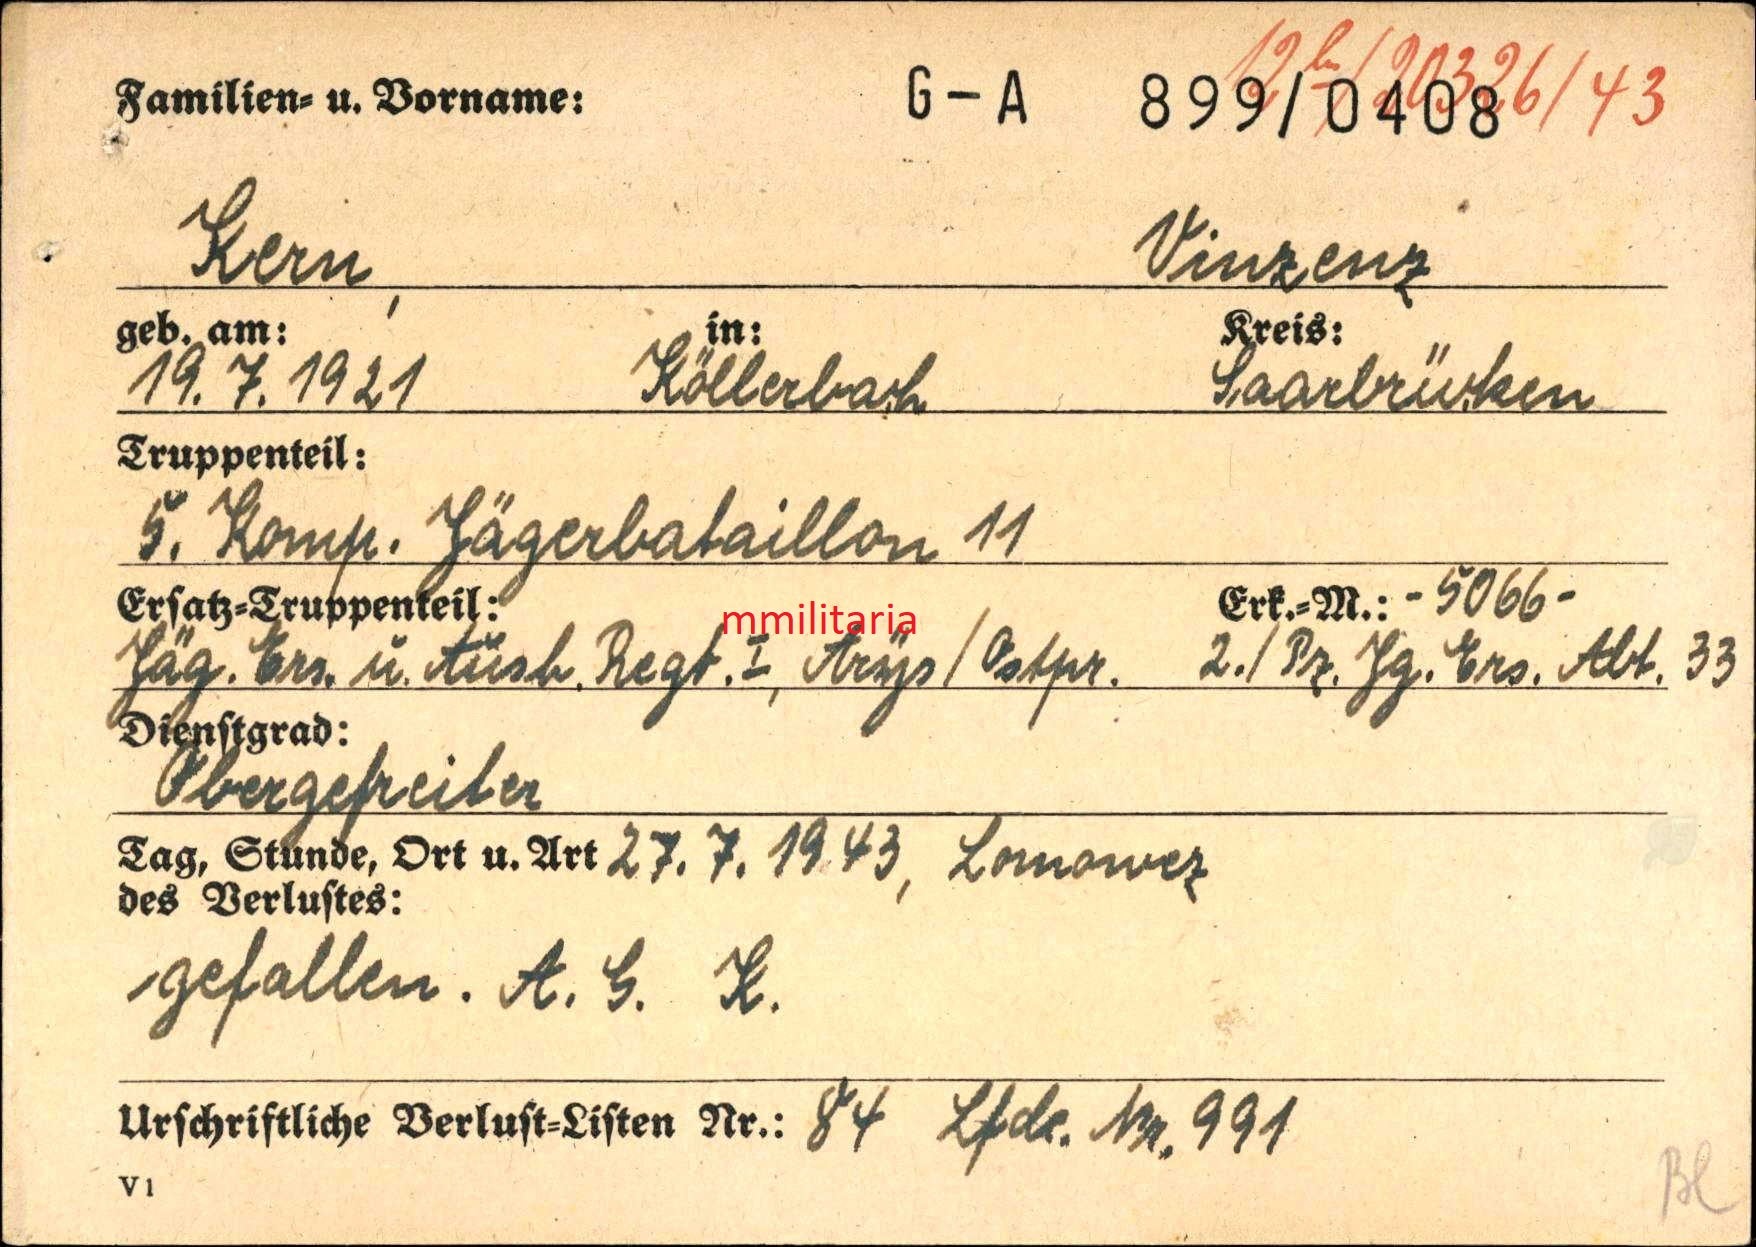 12 /20326/43
Familien= u. Vorname: G-A 899/0408
Kern, Vinzenz
geb. am: in: Kreis:
19. 7. 1921 Köllerbach Saarbrücken
Truppenteil:
5. Komp. Jägerbataillon 11
Ersatz=Truppenteil: Erk.=M.: -5066-
mmilitaria
Jäg. Ers. u. Ausb. Regt. I, Arys/Ostpr. 2./Pz. Jg. Ers. Abt. 33
Dienstgrad:
Obergefreiter
Tag, Stunde, Ort u. Art 27. 7. 1943, Lomowez
des Verlustes:
gefallen. A. G. K.
Urschriftliche Verlust=Listen Nr.: 84 Lfde. Nr. 991
V1
Bl